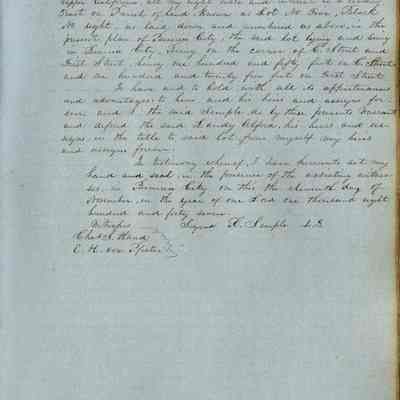 Upper California, all my right
Tract or Parcel of Land, Known as Lot No Four, Block
No eight, as laid down and numbered as above, in the
present plan of Benicia City, the said lot lying and being
in Benicia City, being on the corner of C Street and
First Street, being one hundred and fifty feet on C Street
and one hundred and twenty five feet on First Street
To have and to hold with all its appurtenances
and advantages to him and his heirs and assigns for-
ever and I the said Semple do by these presents warrant
and defend the said Landy Alford, his heirs and as-
signs, in the title to said lot from myself my heirs
and assigns forever.
In testimony whereof, I have hereunto set my
hand and seal in the presence of the assisting witnes-
ses, in Benicia City on this the eleventh day of
November, in the year of our Lord one thousand eight
hundred and forty seven.
Witnesses Signed R. Semple L.S.
Chas S. Hand
E. H. von Pfister